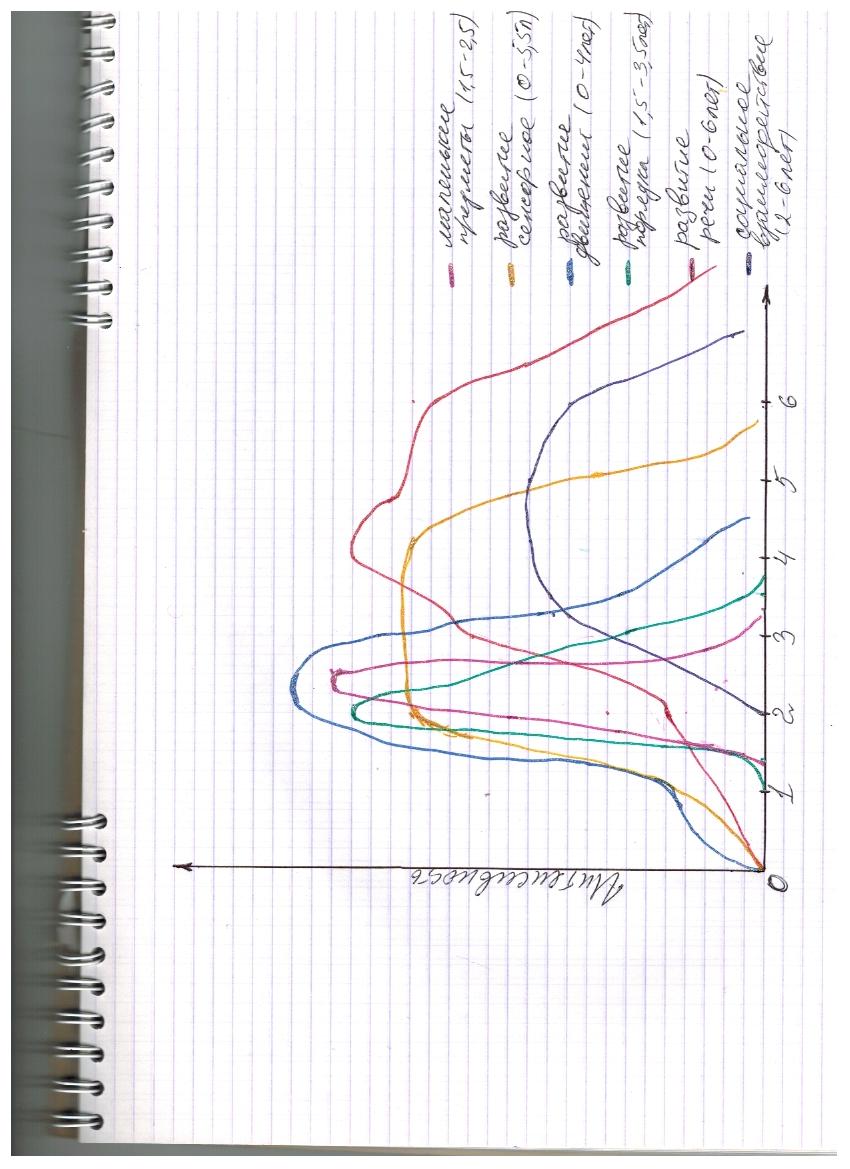 Интенсивность
0
1
2
3
4
5
6
маленькие
предметы (1,5-2,5)
развитие
сенсорное (0-5,5л)
развитие
движений (0-4лет)
развитие
порядка (1,5-3,5лет)
развитие
речи (0-6лет)
социальное
взаимодействие
(2-6лет)